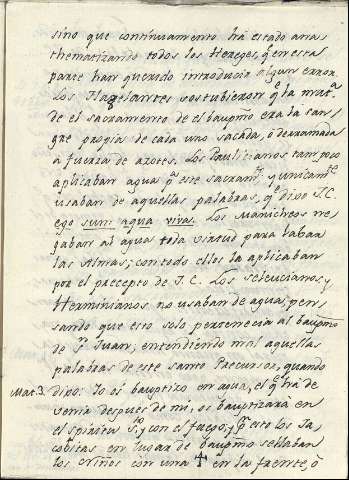 sino que continuamente há estado ana-
thematizando todos los Hereges, qᵉ en esta
parte han querido introducir algun error.
Los Flagelantes sostubieron qᵉ la matᵃ
de el sacramento de el bauptmo era la san-
gre propia de cada uno sacada, ó derramada
á fuerza de azotes. Los Paulicianos tampoco
aplicaban agua pᵃ este sacramᵗᵒ, y unicamᵗᵉ
usaban de aquellas palabras, qᵉ dijo J.C.
ego sum aqua viva. Los Manicheos ne-
gaban al agua toda virtud para labar
las Almas; con todo ellos la aplicaban
por el precepto de J.C. Los Seleucianos, y
Herminianos no usaban de agua, pen-
sando que esto solo pertenecia al bauptmo
de Sⁿ Juan; entendiendo mal aquellas
palabras de este santo Precursor, quando
Mat. 3. dijo: Io os bauptizo en agua, el qᵉ há de
venir despues de mi, os bauptizará en
el spiritu Sᵗᵒ, y con el fuego; y pʳ esto los Ja-
cobitas en lugar de bauptmo sellaban
los niños con una ✝ en la frente, ó